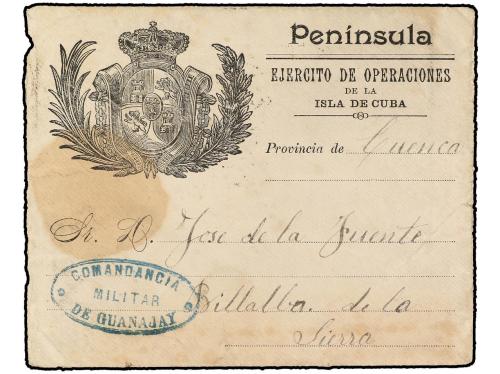 Península
EJERCITO DE OPERACIONES
DE LA
ISLA DE CUBA
Provincia de Cuenca
Sr. D. Jose de la Fuente
COMANDANCIA
MILITAR
DE GUANAJAY
Billalba de la
Sierra